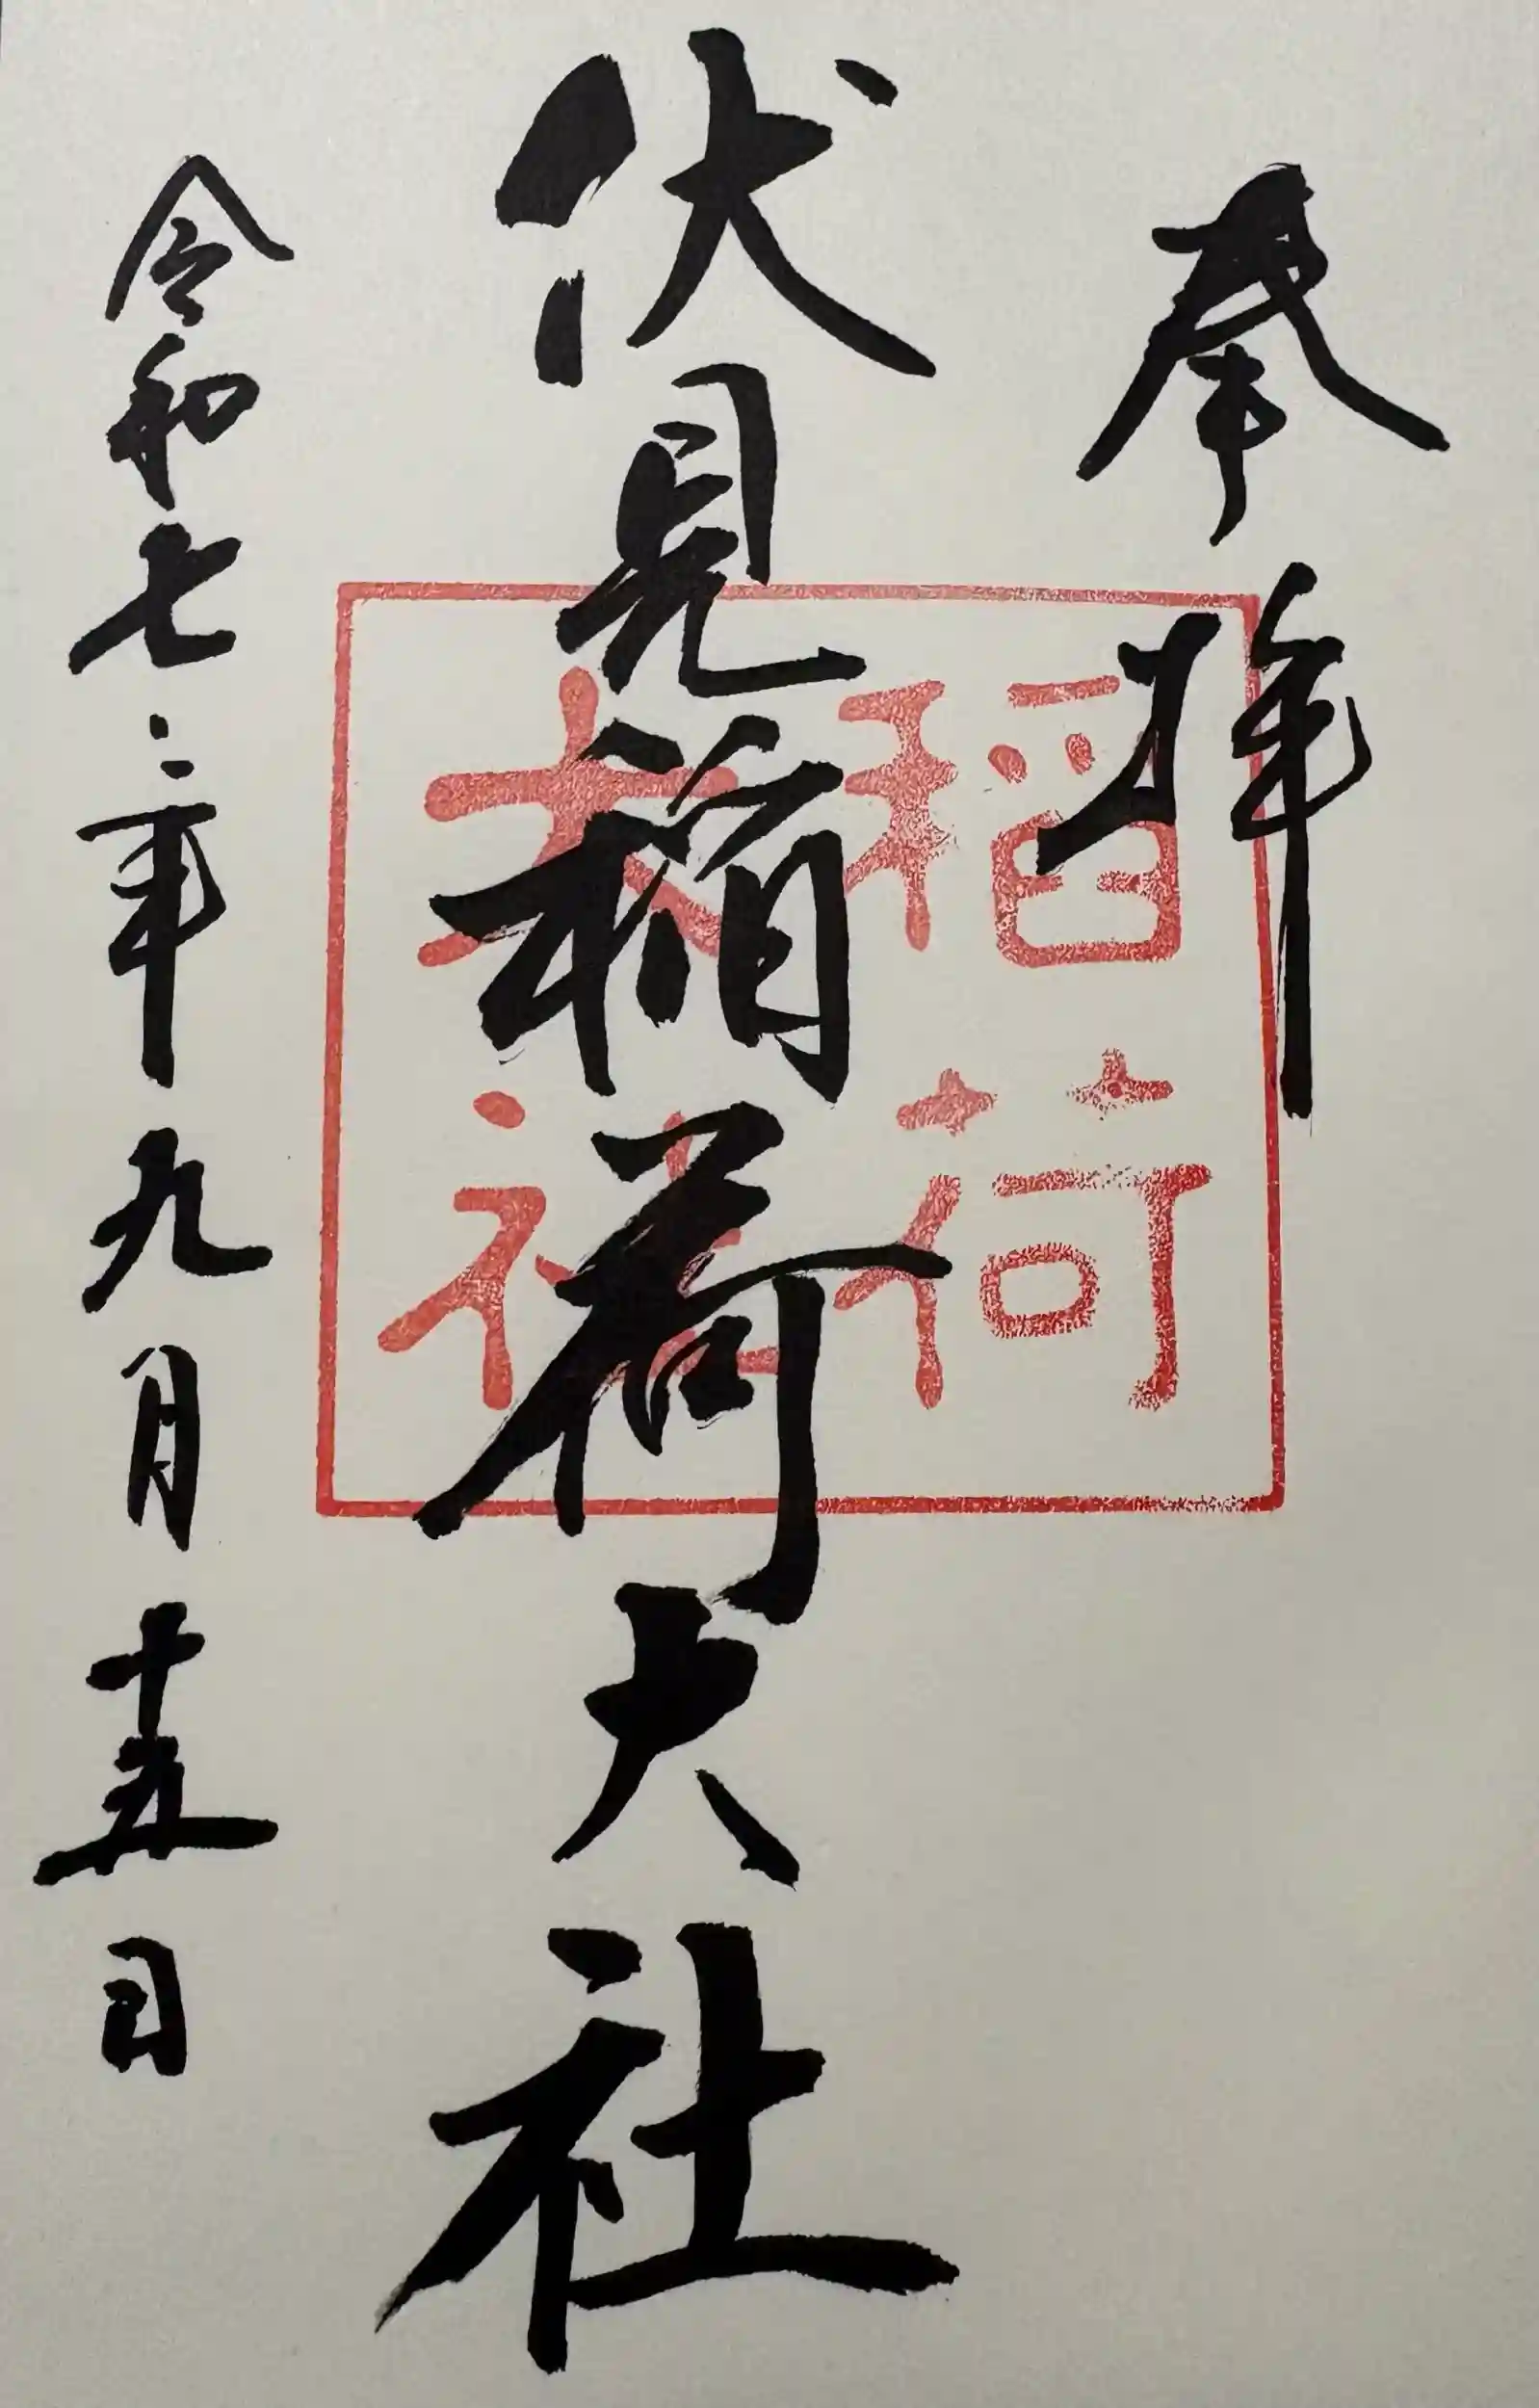 奉拝
伏見稲荷大社
稲荷
大社
令和七年九月十五日